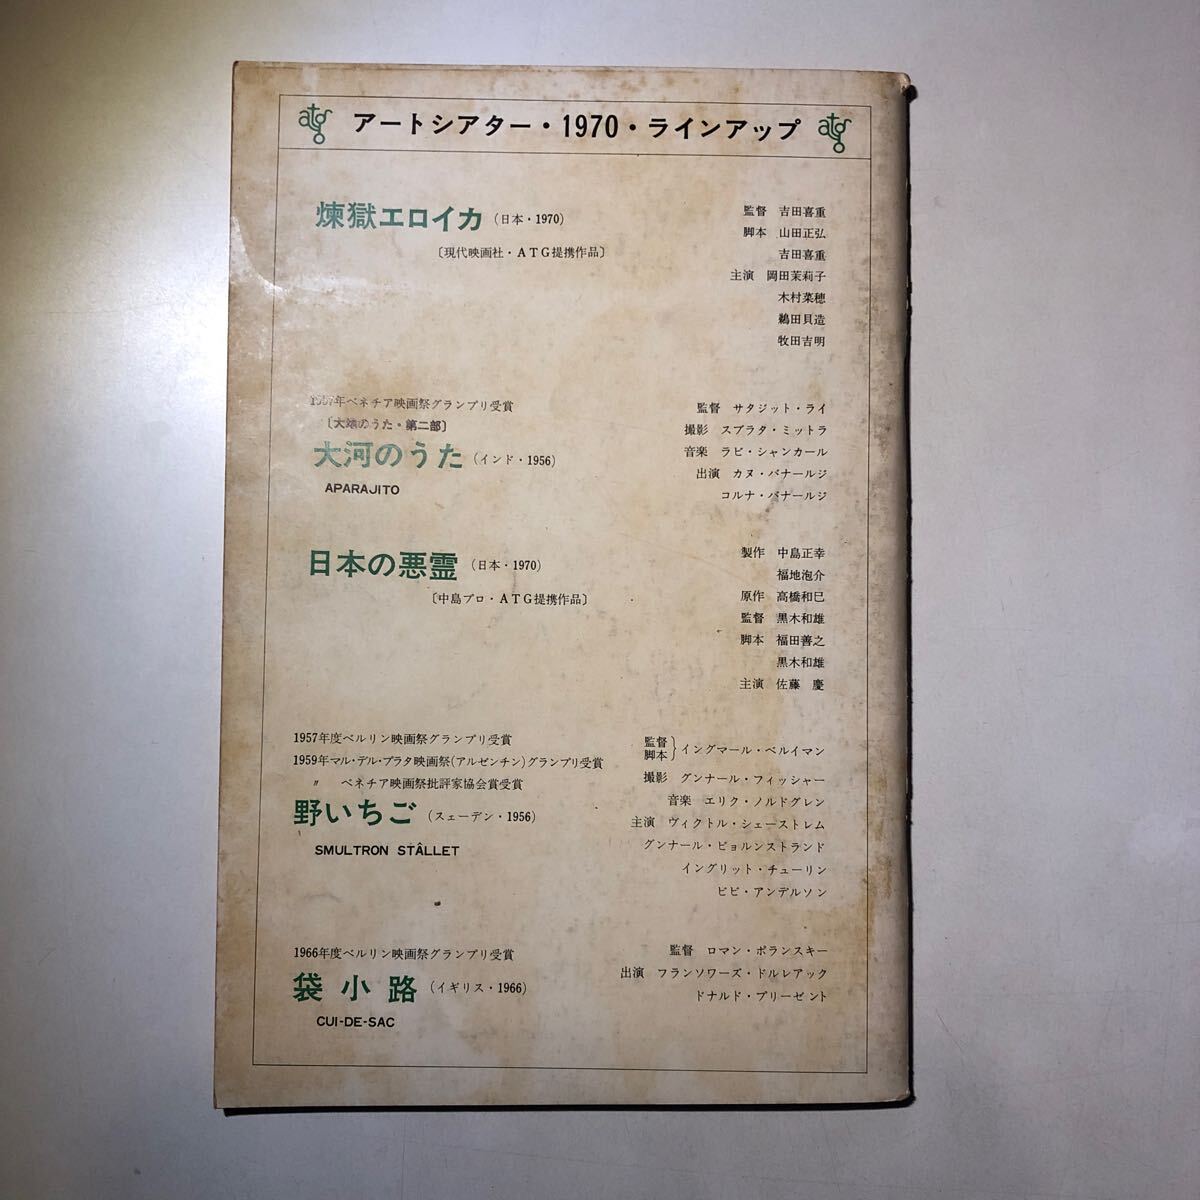 atg アートシアター・1970・ラインアップ atg
煉獄エロイカ (日本・1970)
〔現代映画社・ATG提携作品〕
監督 吉田喜重
脚本 山田正弘
吉田喜重
主演 岡田茉莉子
木村菜穂
鵜田貝造
牧田吉明
1957年ベネチア映画祭グランプリ受賞
〔大地のうた・第二部〕
大河のうた (インド・1956)
APARAJITO
監督 サタジット・ライ
撮影 スブラタ・ミットラ
音楽 ラビ・シャンカール
出演 カヌ・バナールジ
コルナ・バナールジ
日本の悪霊 (日本・1970)
〔中島プロ・ATG提携作品〕
製作 中島正幸
福地泡介
原作 高橋和巳
監督 黒木和雄
脚本 福田善之
黒木和雄
主演 佐藤 慶
1957年度ベルリン映画祭グランプリ受賞
1959年マル・デル・プラタ映画祭(アルゼンチン)グランプリ受賞
〃 ベネチア映画祭批評家協会賞受賞
野いちご (スェーデン・1956)
SMULTRON STÂLLET
監督
脚本}イングマール・ベルイマン
撮影 グンナール・フィッシャー
音楽 エリク・ノルドグレン
主演 ヴィクトル・シェーストレム
グンナール・ビョルンストランド
イングリット・チューリン
ビビ・アンデルソン
1966年度ベルリン映画祭グランプリ受賞
袋小路 (イギリス・1966)
CUI-DE-SAC
監督 ロマン・ポランスキー
出演 フランソワーズ・ドルレアック
ドナルド・プリーゼント